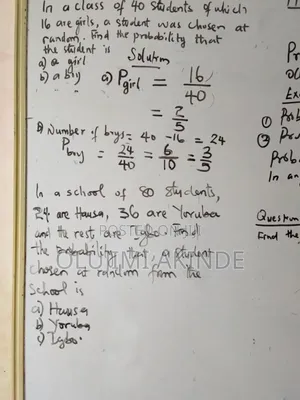 In a class of 40 students of which
16 are girls, a student was chosen at
random. Find the probability that
the student is
a) a girl
b) a boy
Solution
a) P girl = 16/40
= 2/5
b) Number of boys = 40 - 16 = 24
P boy = 24/40 = 6/10 = 3/5
In a school of 80 students,
24 are Hausa, 36 are Yoruba
and the rest are Igbo. Find
the probability that a student
chosen at random from the
school is
a) Hausa
b) Yoruba
c) Igbo.
POSTED ON
OLUJIMI AKINDE
Pr
Ex
① Prob
② Pro
Proba
In an
Question
Find the